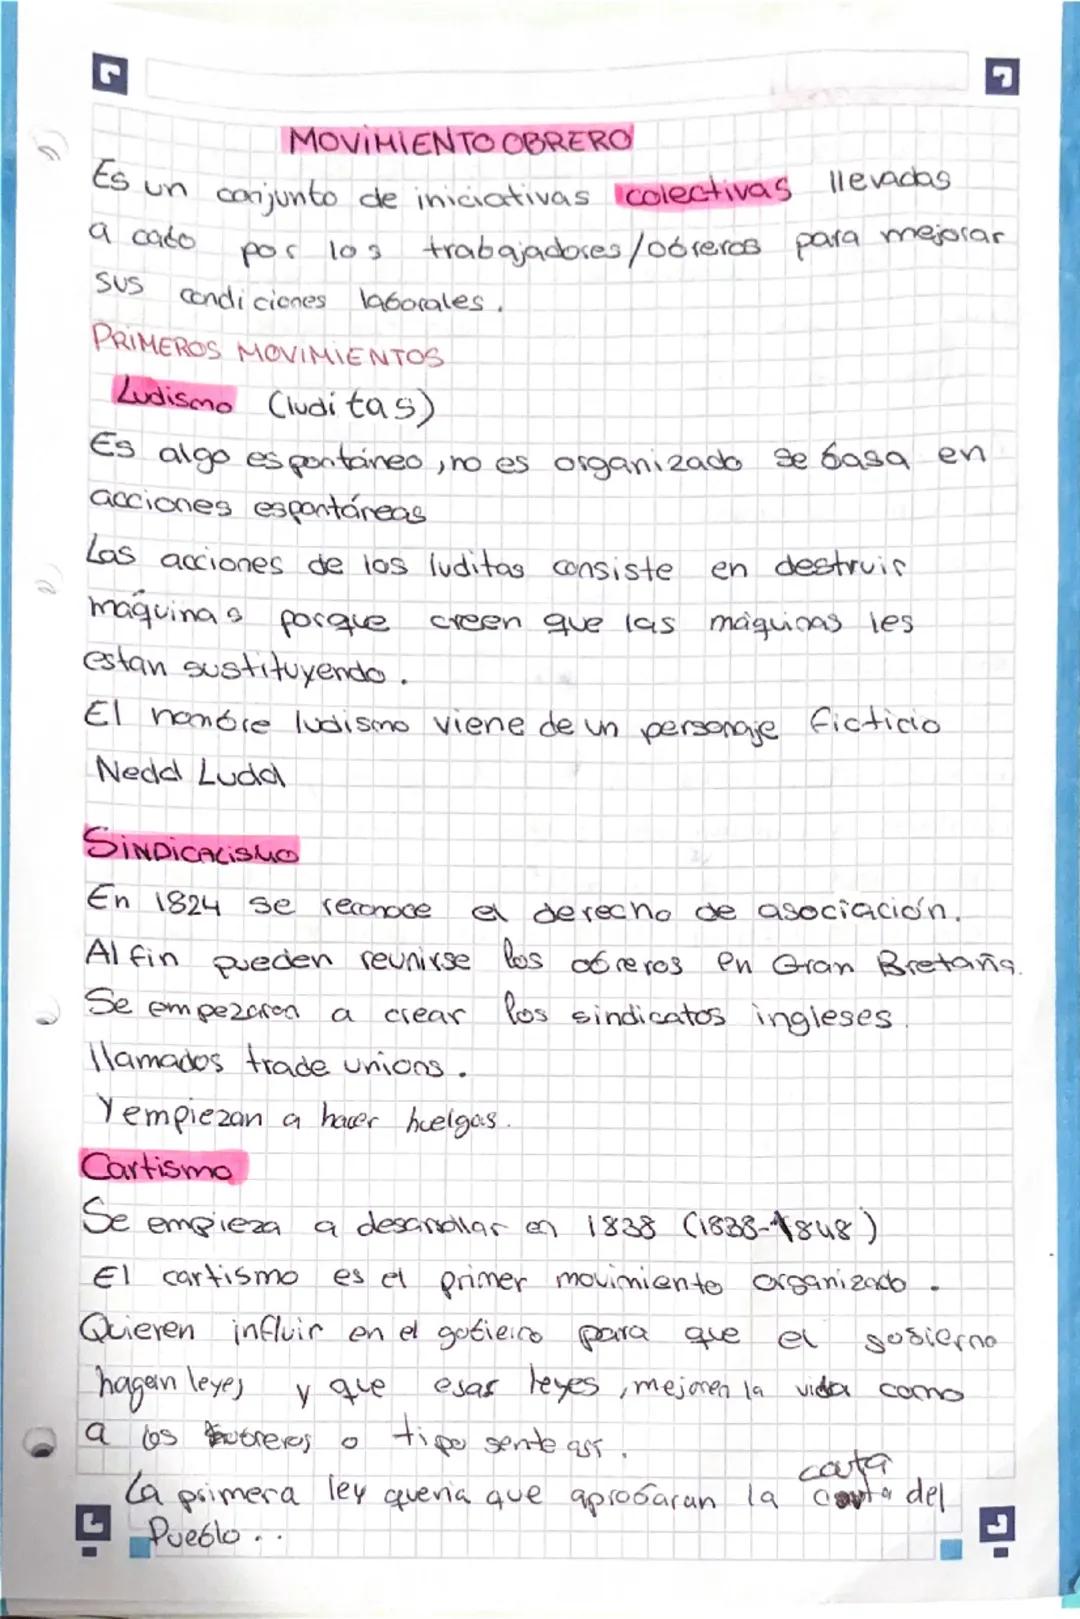 MOVIMIENTO OBRERO
Es un conjunto de iniciativas colectivas llevadas
a cabo por los trabajadores/obreros para mejorar
sus condiciones laborales.
PRIMEROS MOVIMIENTOS
Ludismo (luditas)
Es algo espontáneo, no es organizado se basa en
acciones espontáneas
Las acciones de los luditas consiste en destruir
máquinas porque creen que las máquinas les
estan sustituyendo.
El nombre ludismo viene de un personaje ficticio
Nedd Ludd
SINDICALISMO
En 1824 se reconoce el derecho de asociación.
Al fin pueden reunirse los obreros en Gran Bretaña.
Se empezaron a crear los sindicatos ingleses
llamados trade unions.
Y empiezan a hacer huelgas.
Cartismo
Se empieza a desarrollar en 1838 (1838-1848)
El cartismo es el primer movimiento organizado.
Quieren influir en el gobierno para que el gobierno
hagan leyes y que esas leyes, mejoren la vida como
a los obreros o tipo sente así.
carta
La primera ley quería que aprobaran la del
Pueblo...